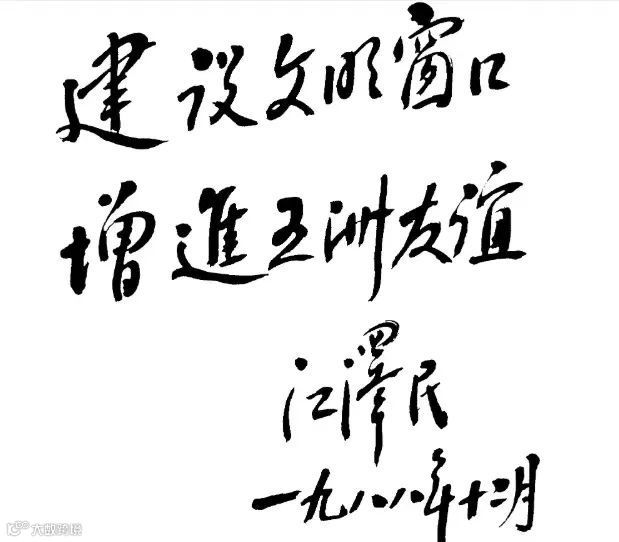 建设文明窗口
增進五洲友谊
江澤民
一九八八年十二月
大数跨境